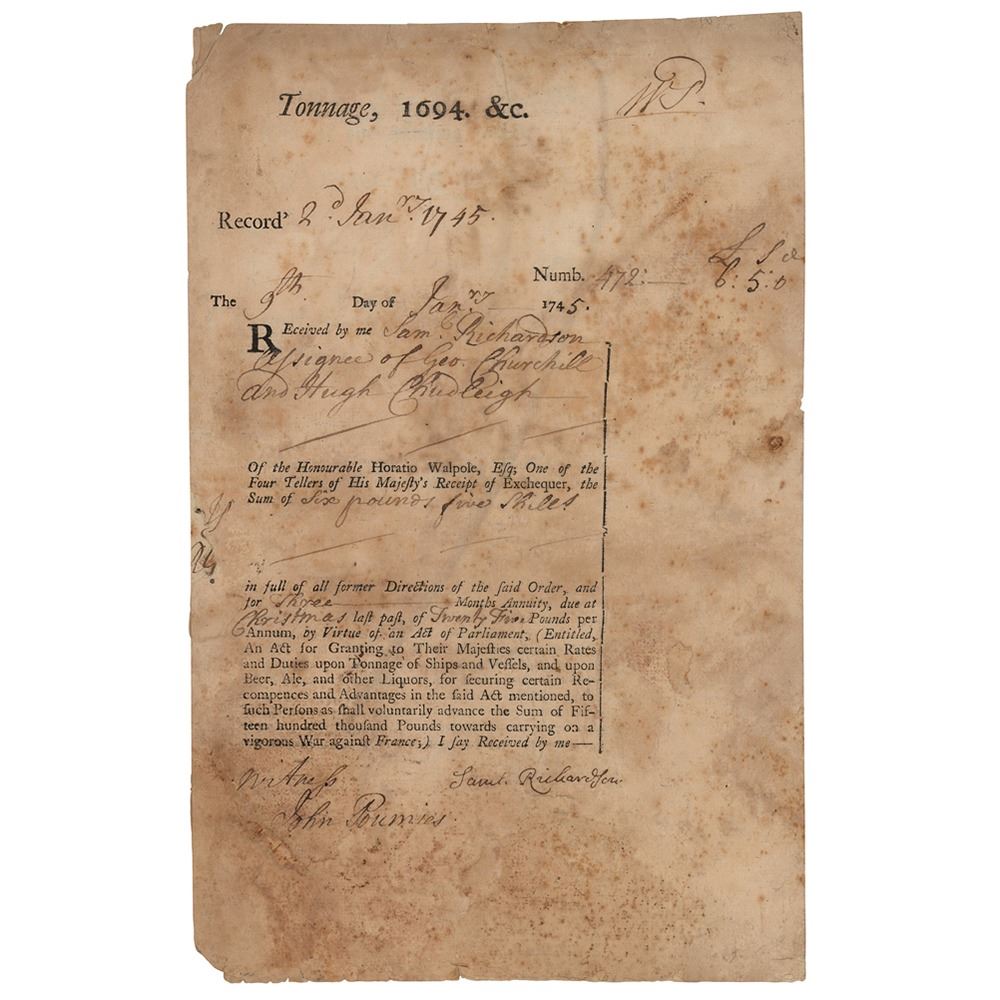 Tonnage, 1694. &c.
Record' 2d. Janry. 1745.
£ S d
Numb. 472:— 6: 5: 0
The 9th Day of Janry 1745.
REceived by me Sam. Richardson
Assignee of Geo. Churchill
and Hugh Chudleigh
Of the Honourable Horatio Walpole, Eſq; One of the
Four Tellers of His Majeſty's Receipt of Exchequer, the
Sum of Six pounds five Shills
in full of all former Directions of the ſaid Order, and
for Three Months Annuity, due at
Christmas laſt paſt, of Twenty Five Pounds per
Annum, by Virtue of an Act of Parliament, (Entitled,
An Act for Granting to Their Majeſties certain Rates
and Duties upon Tonnage of Ships and Veſſels, and upon
Beer, Ale, and other Liquors, for ſecuring certain Re-
compences and Advantages in the ſaid Act mentioned, to
ſuch Perſons as ſhall voluntarily advance the Sum of Fif-
teen hundred thouſand Pounds towards carrying on a
vigorous War againſt France;) I ſay Received by me—
Witneſs Saml. Richardſon
John